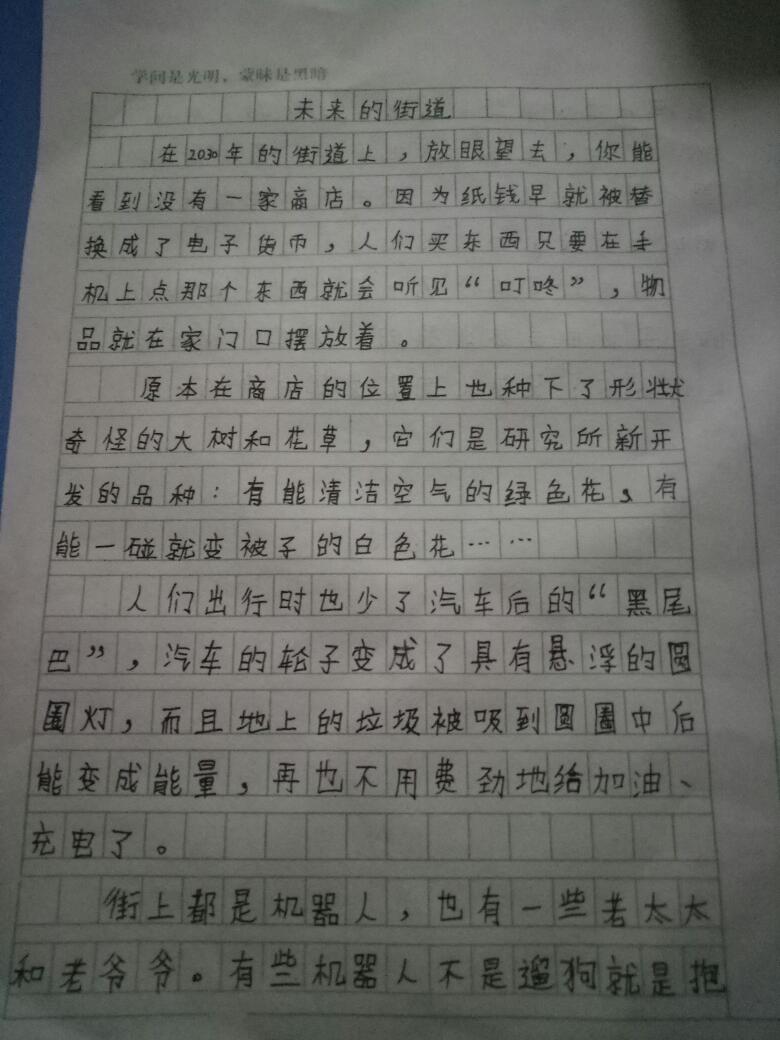 学问是光明，蒙昧是黑暗
未来的街道
在2030年的街道上，放眼望去，你能
看到没有一家商店。因为纸钱早就被替
换成了电子货币，人们买东西只要在手
机上点那个东西就会听见“叮咚”，物
品就在家门口摆放着。
原本在商店的位置上也种下了形状
奇怪的大树和花草，它们是研究所新开
发的品种：有能清洁空气的绿色花、有
能一碰就变被子的白色花……
人们出行时也少了汽车后的“黑尾
巴”，汽车的轮子变成了具有悬浮的圆
圈灯，而且地上的垃圾被吸到圆圈中后
能变成能量，再也不用费劲地给加油、
充电了。
街上都是机器人，也有一些老太太
和老爷爷。有些机器人不是遛狗就是抱